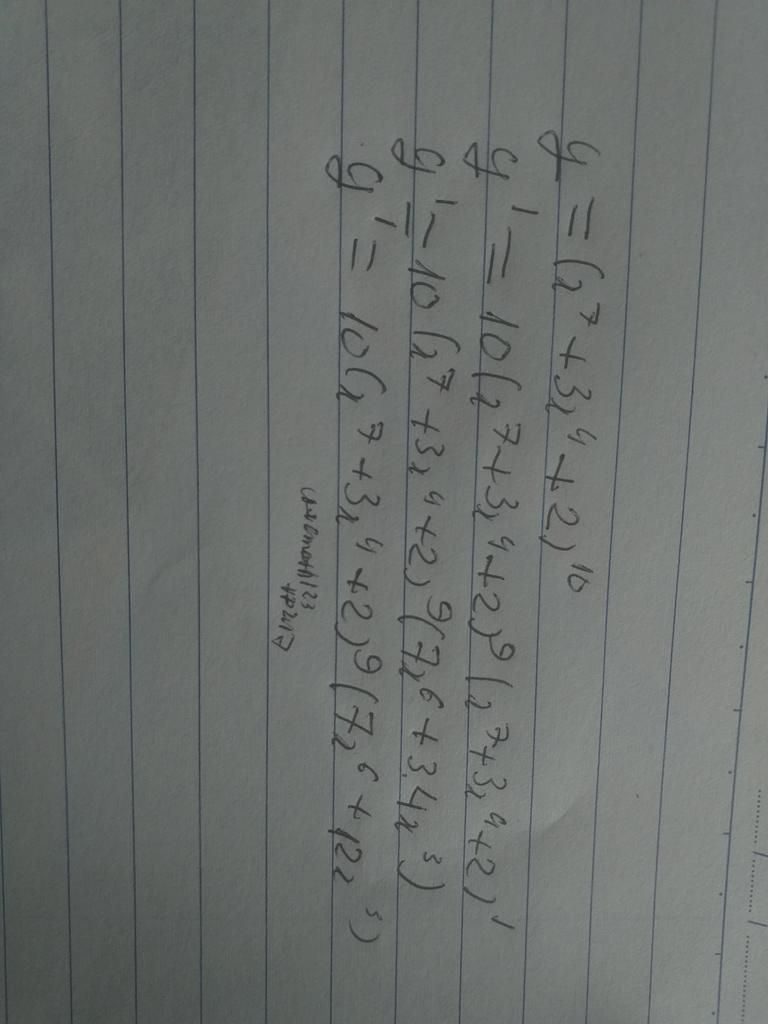 y = (x⁷ + 3x⁴ + 2)¹⁰
y' = 10(x⁷ + 3x⁴ + 2)⁹(x⁷ + 3x⁴ + 2)'
y' = 10(x⁷ + 3x⁴ + 2)⁹(7x⁶ + 3.4x³)
y' = 10(x⁷ + 3x⁴ + 2)⁹(7x⁶ + 12x³)